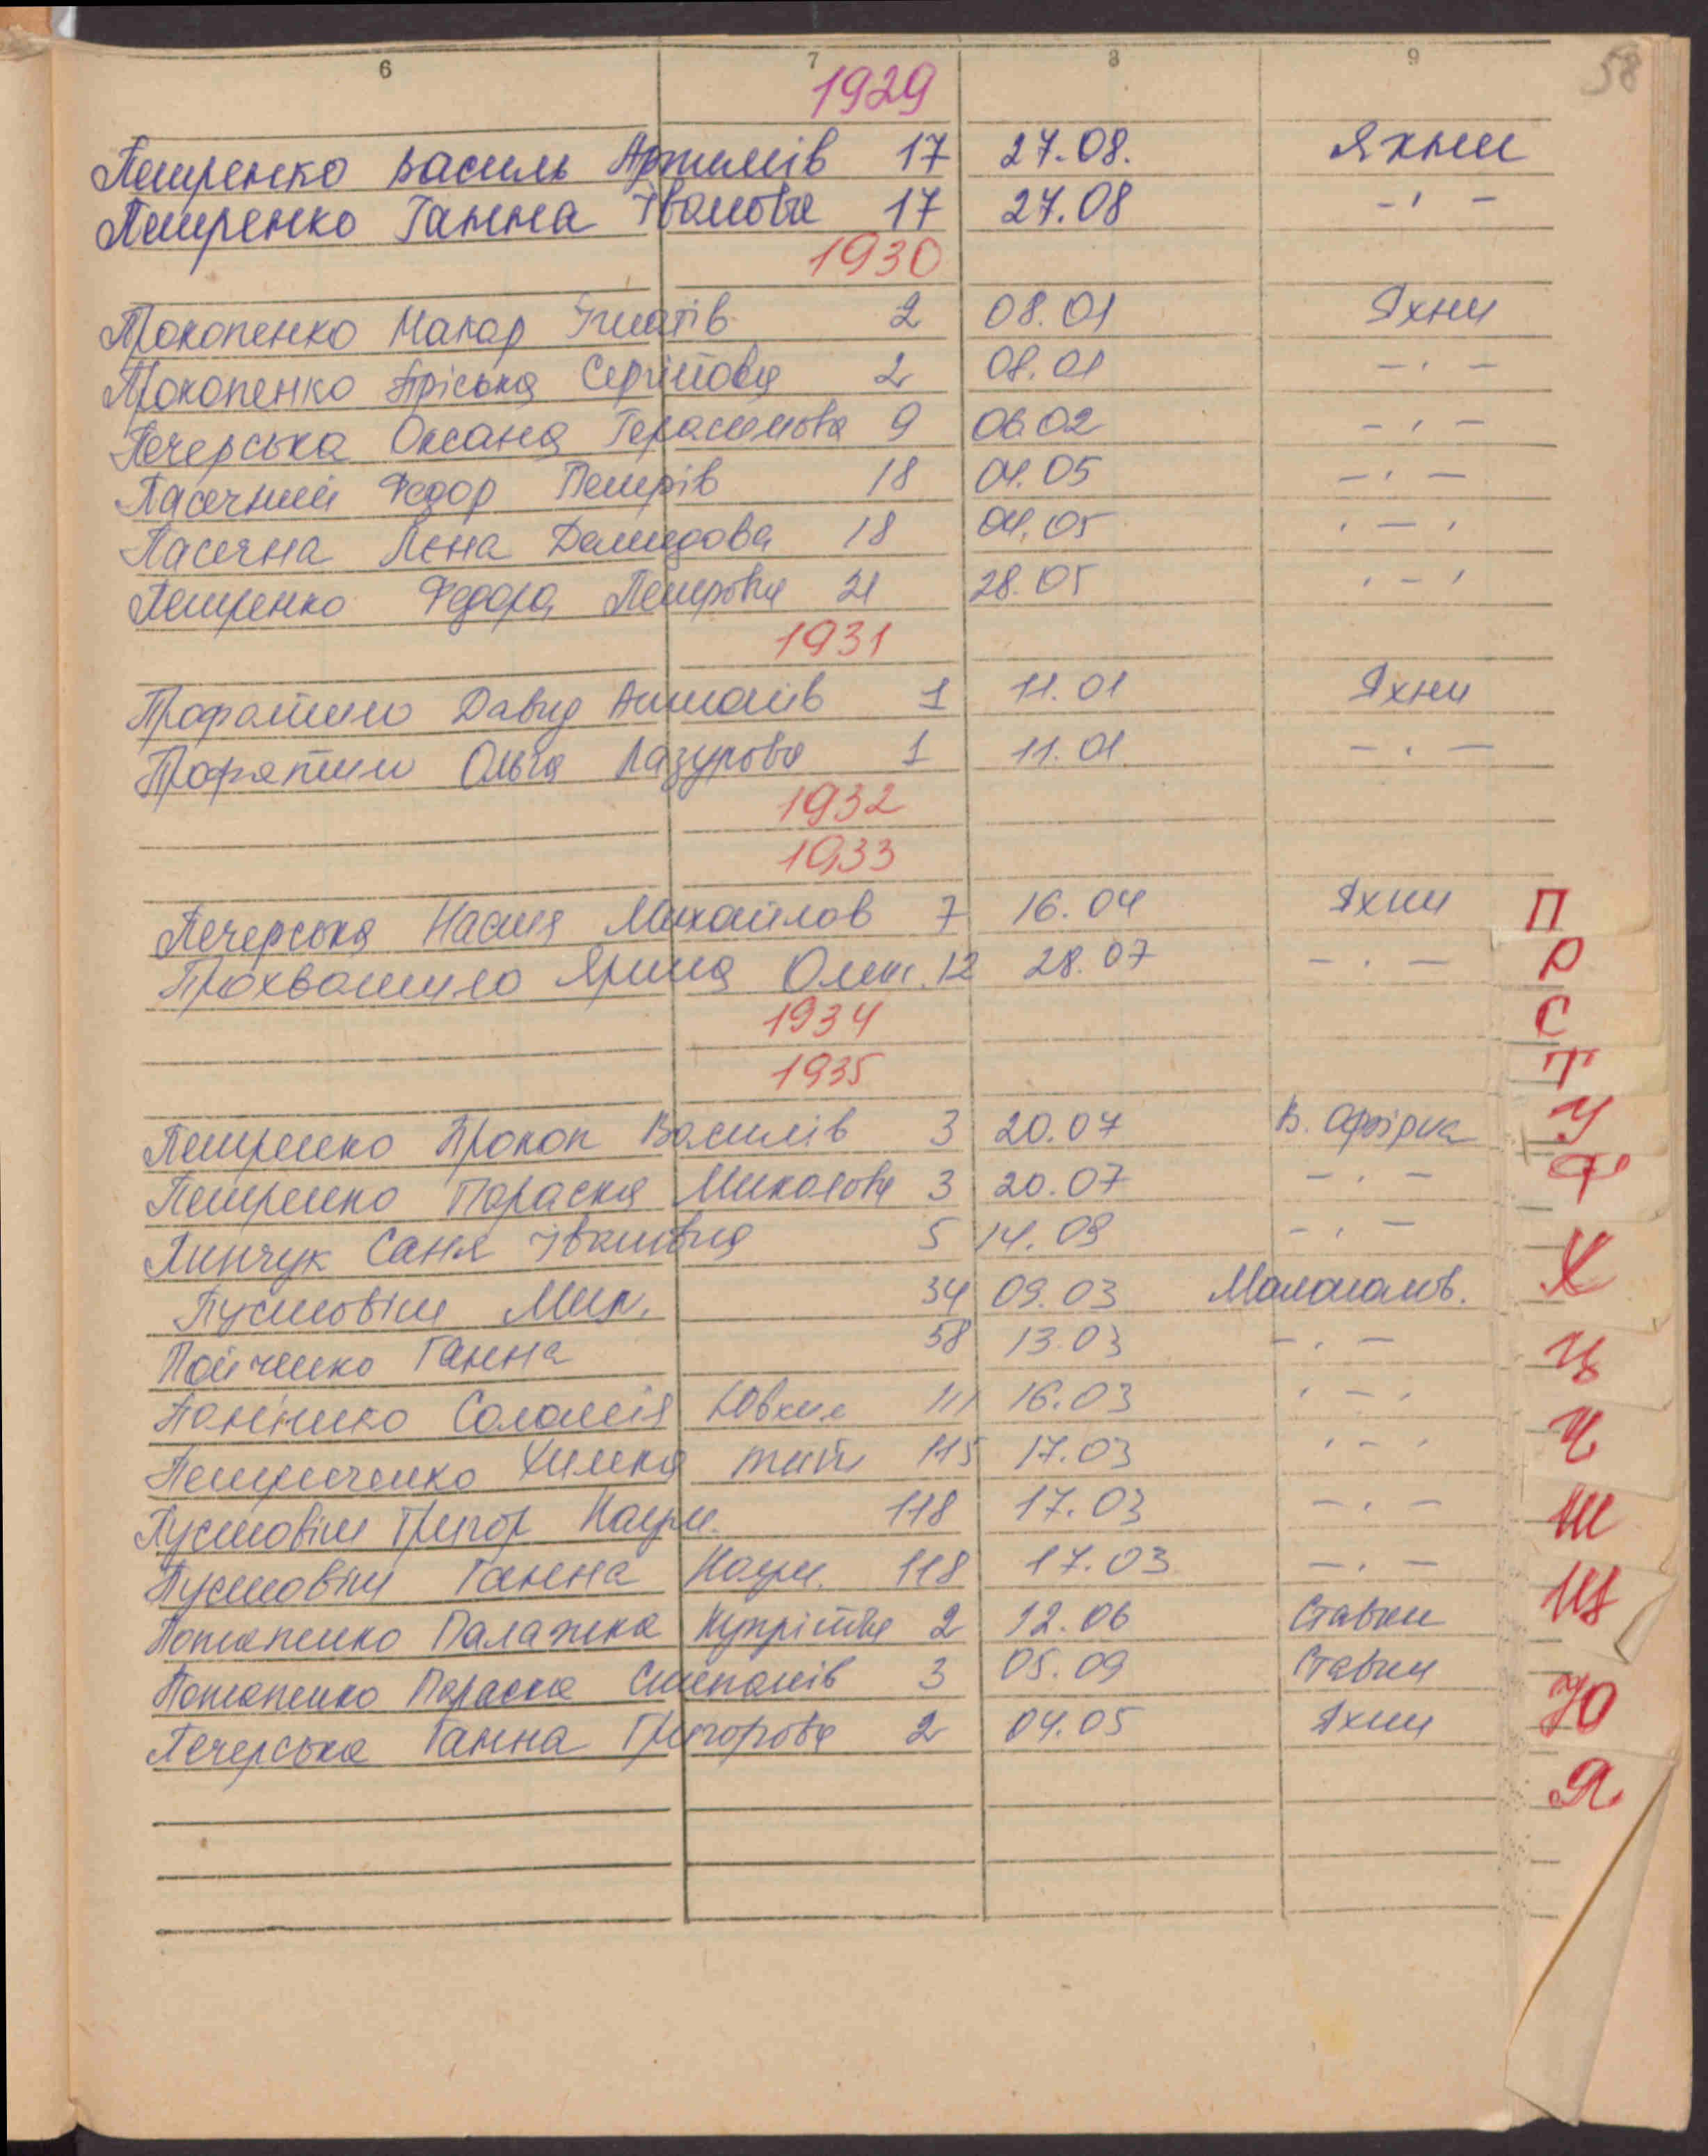 58
6 7 8 9
1929
Петренко Василь Артимів 17 27.08. Яхни
Петренко Ганна Іванова 17 27.08 -'-
1930
Прокопенко Макар Ігнатів 2 08.01 Яхни
Прокопенко Пріська Сергійова 2 08.01 -'-
Печерська Оксана Герасимова 9 06.02 -'-
Пасечний Федор Петрів 18 04.05 -'-
Пасечна Лєна Демидова 18 04.05 '-'
Петренко Федора Петрова 21 28.05 '-'
1931
Профатило Давид 1 11.01 Яхни
Профатило Ольга Лазурова 1 11.01 -'-
1932
1933
Печерська Настя Михайлов 7 16.04 Яхни
Прохватило Ярина Олек. 12 28.07 -'-
1934
1935
Петренко Прокоп Василів 3 20.07 В. Офірна
Петренко Параска Миколова 3 20.07 -'-
Пинчук Саня Івановна 5 14.09 -'-
Пустовіт Мик. 34 09.03
Пойченко Ганна 58 13.03 -'-
Соломія 111 16.03 '-'
Петриченко Химка тит 115 17.03 '-'
Пустовіт Григор Наум. 118 17.03 -'-
Пустовіт Ганна Наум. 118 17.03 -'-
Потапенко Палажка 2 12.06 Ставки
Потапенко Параска Степанів 3 05.09 Ставки
Печерська Ганна Григорова 2 04.05 Яхни
П
Р
С
Т
У
Ф
Х
Ц
Ч
Ш
Щ
Ю
Я